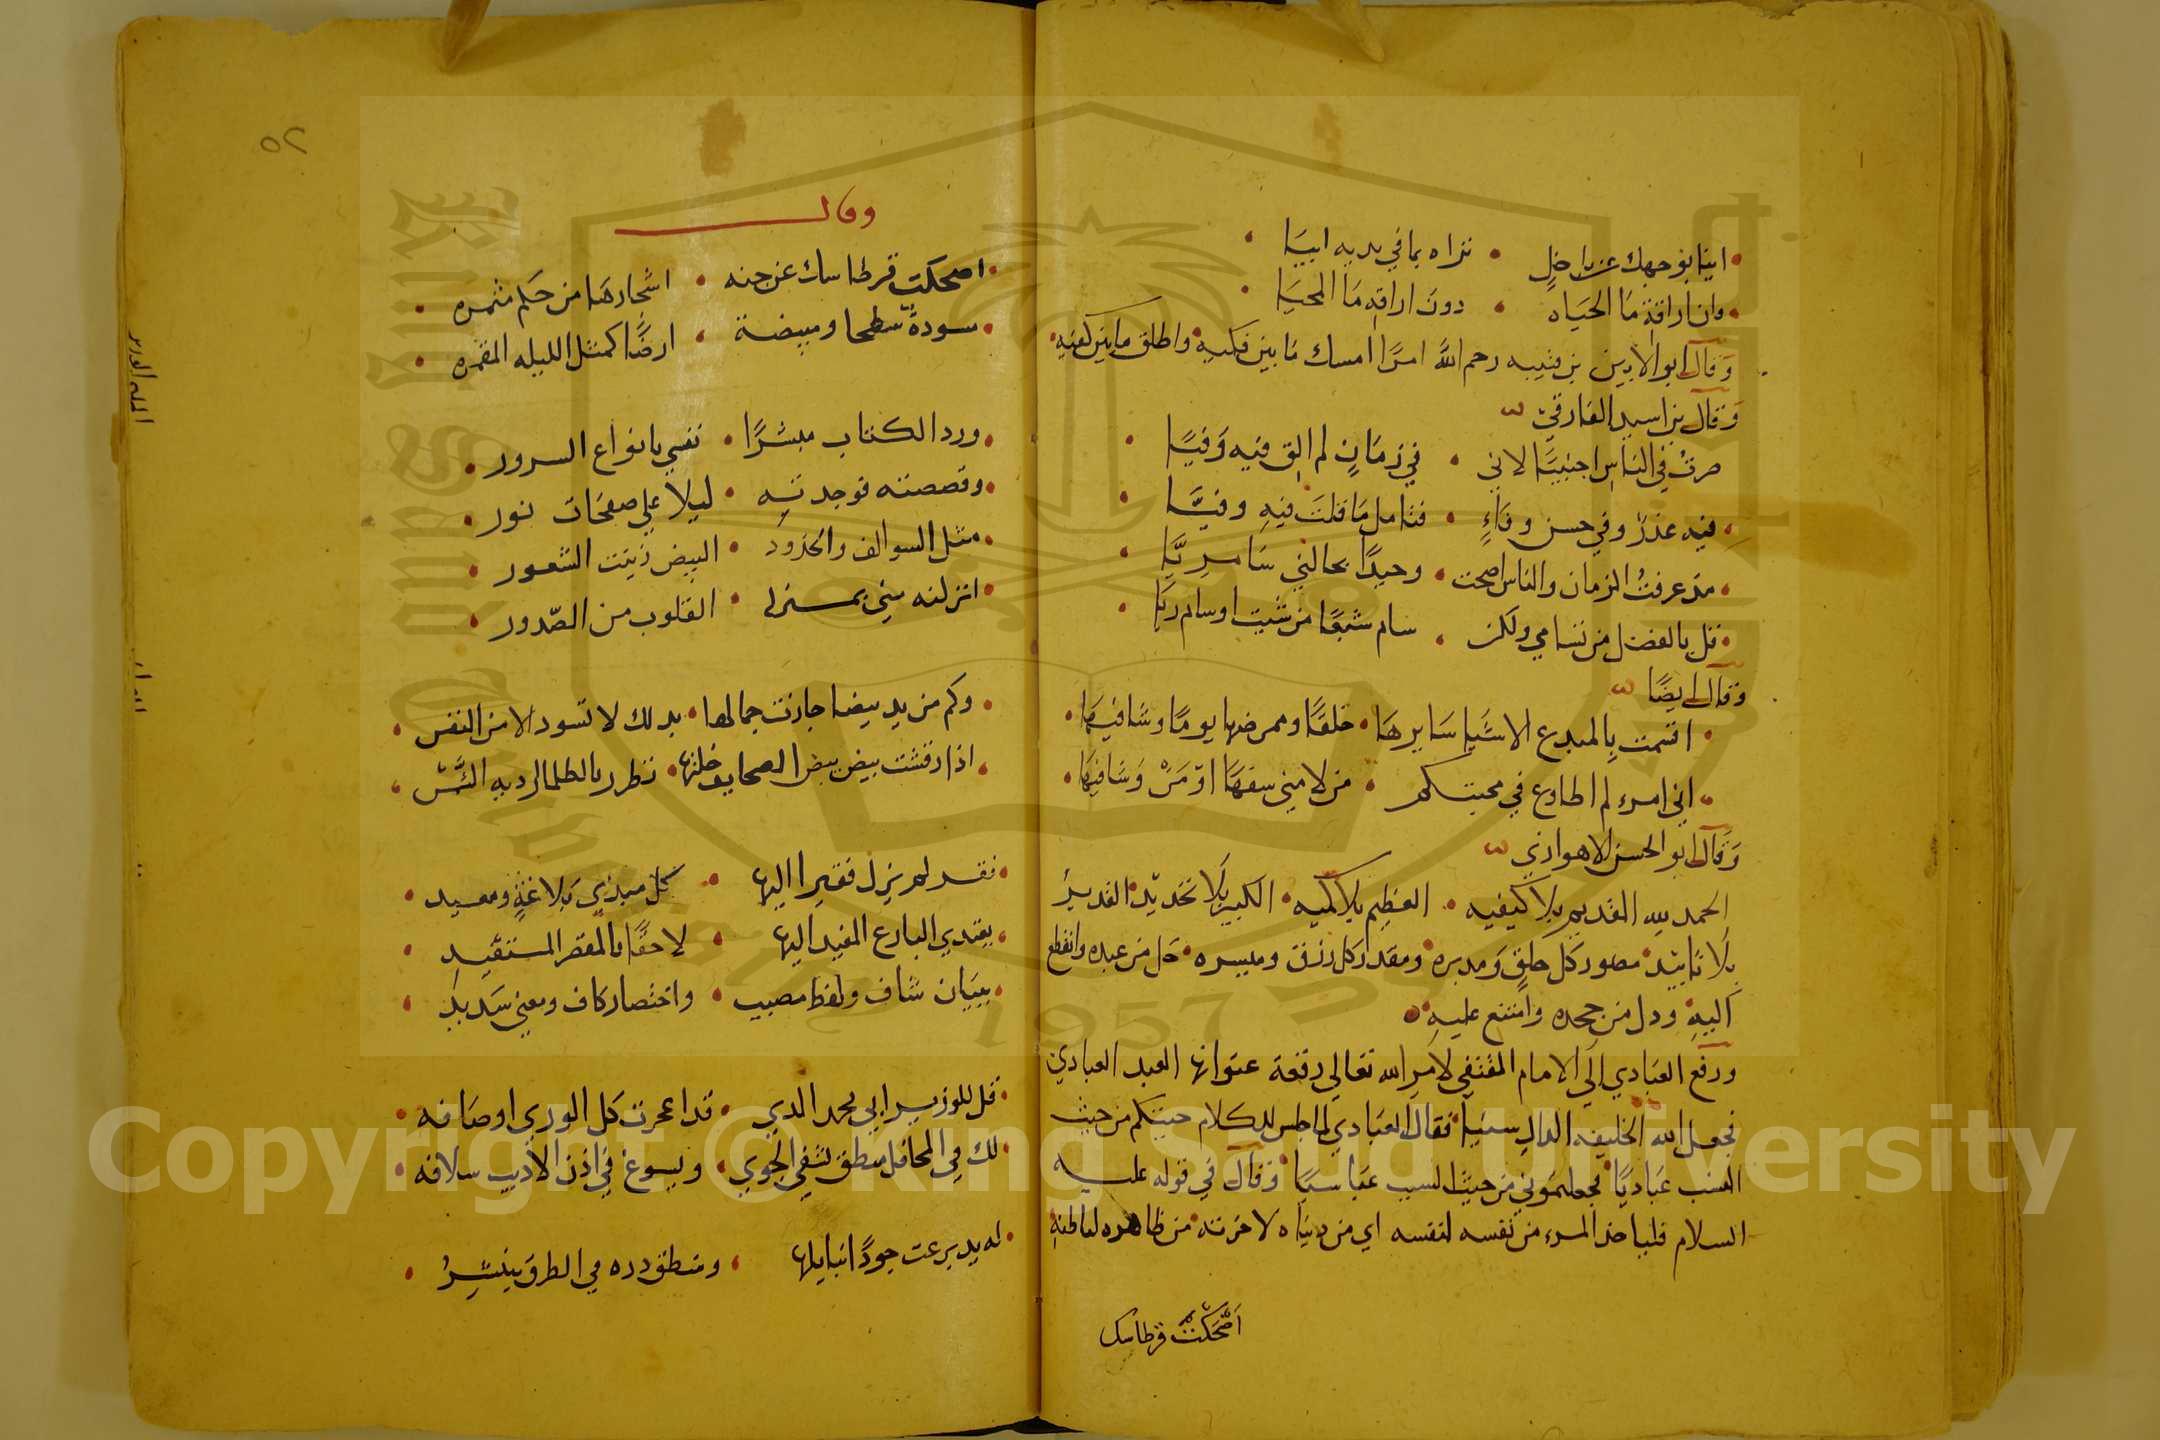 ابيا بوجهك عن باخل • تراه بما في يديه ابيا
وان اراقة ما الحياه • دون اراقة ما المحيا
وقال ابو الابين بن قتيبه رحم الله امرًا امسك ما بين فكيه واطلق ما بين كفيه
وقال بن اسيد الفارقي
صرتُ في الناس اجنبيًا لاني • في زمانٍ لم الق فيه وفيًا
فيه عذرٌ وفي حسن وفاءٍ • فتامل ما قلت فيهِ وفيَّا
مذ عرفتُ الزمان والناس اضحت • وحيدًا بحالتي سامريًّا
قل بالفضل من تسامي ولكن • سام شبعًا من شيت او سام ريًا
وقال ايضًا
اقسمت بالمبدع الاشيا سايرها • خلقًا وممرضها يومًا وشافيها
اني امرء لم اطاوع في محبتكم • من لامني سفهًا او مَرّ وشافيها
وقال ابو الحسن الاهوازي
الحمد لله القديم بلا كيفيه • العظيم بلا كميه • الكبير بلا تحديد • القدير
بلا تاييد • مصور كل خلقٍ ومدبره • ومقدر كل رزق وميسره • جل من عبده وانقطع
اليهِ • وذل من جحده وامتنع عليهِ
ورفع العبادي الي الامام المقتفي لامر الله تعالي رقعة عنوانها العبد العبادي
فجعل الله الخليفه الدال سينيا • فقال العبادي لما جلس للكلام حيتكم من حيث
النسب عباديًا • فجعلتموني من حيث السبب عباسيًا • وقال في قوله عليه
السلام فلياخذ المرء من نفسه لنفسه اي من دنياه لاخرته • من ظاهره لباطنه
اَضْحَكَتْ قرطاسك
٥٢
وقال
اضحكت قرطاسك عن جنه • اشجارها من حكم مثمره
مسودةٌ سطحا ومبيضة • ارضًا كمثل الليله المقمره
ورد الكتاب مبشرًا • نفسي بانواع السرور
وقصصته فوجدته • ليلا علي صفحات نور
مثل السوالف والخدود • البيض زينت الشعور
انزلته مني بمنزله • القلوب من الصّدور
وكم من يد بيضا حازت جمالها • يد لك لا تسود الا من النقس
اذا رقشت بيض الصحايف خلتها • تطرز بالظلما اردية الشمس
فقد لم يزل فقيرا اليها • كل مبدي بلاغةٍ ومعيد
يغتدي البارع المفيد اليها • لاحقًا بالمقصر المستفيد
ببيان شاف ولفظ مصيب • واختصار كاف ومعني سديد
قل للوزير ابي محمد الذي • قد اعجزت كل الوري اوصافه
لك في المحافل منطق تشفي الجوي • ويسوغ في اذن الاديب سلافه
له يد برعت جودًا انبايلها • ومنطق دره في الطرق ينتثر